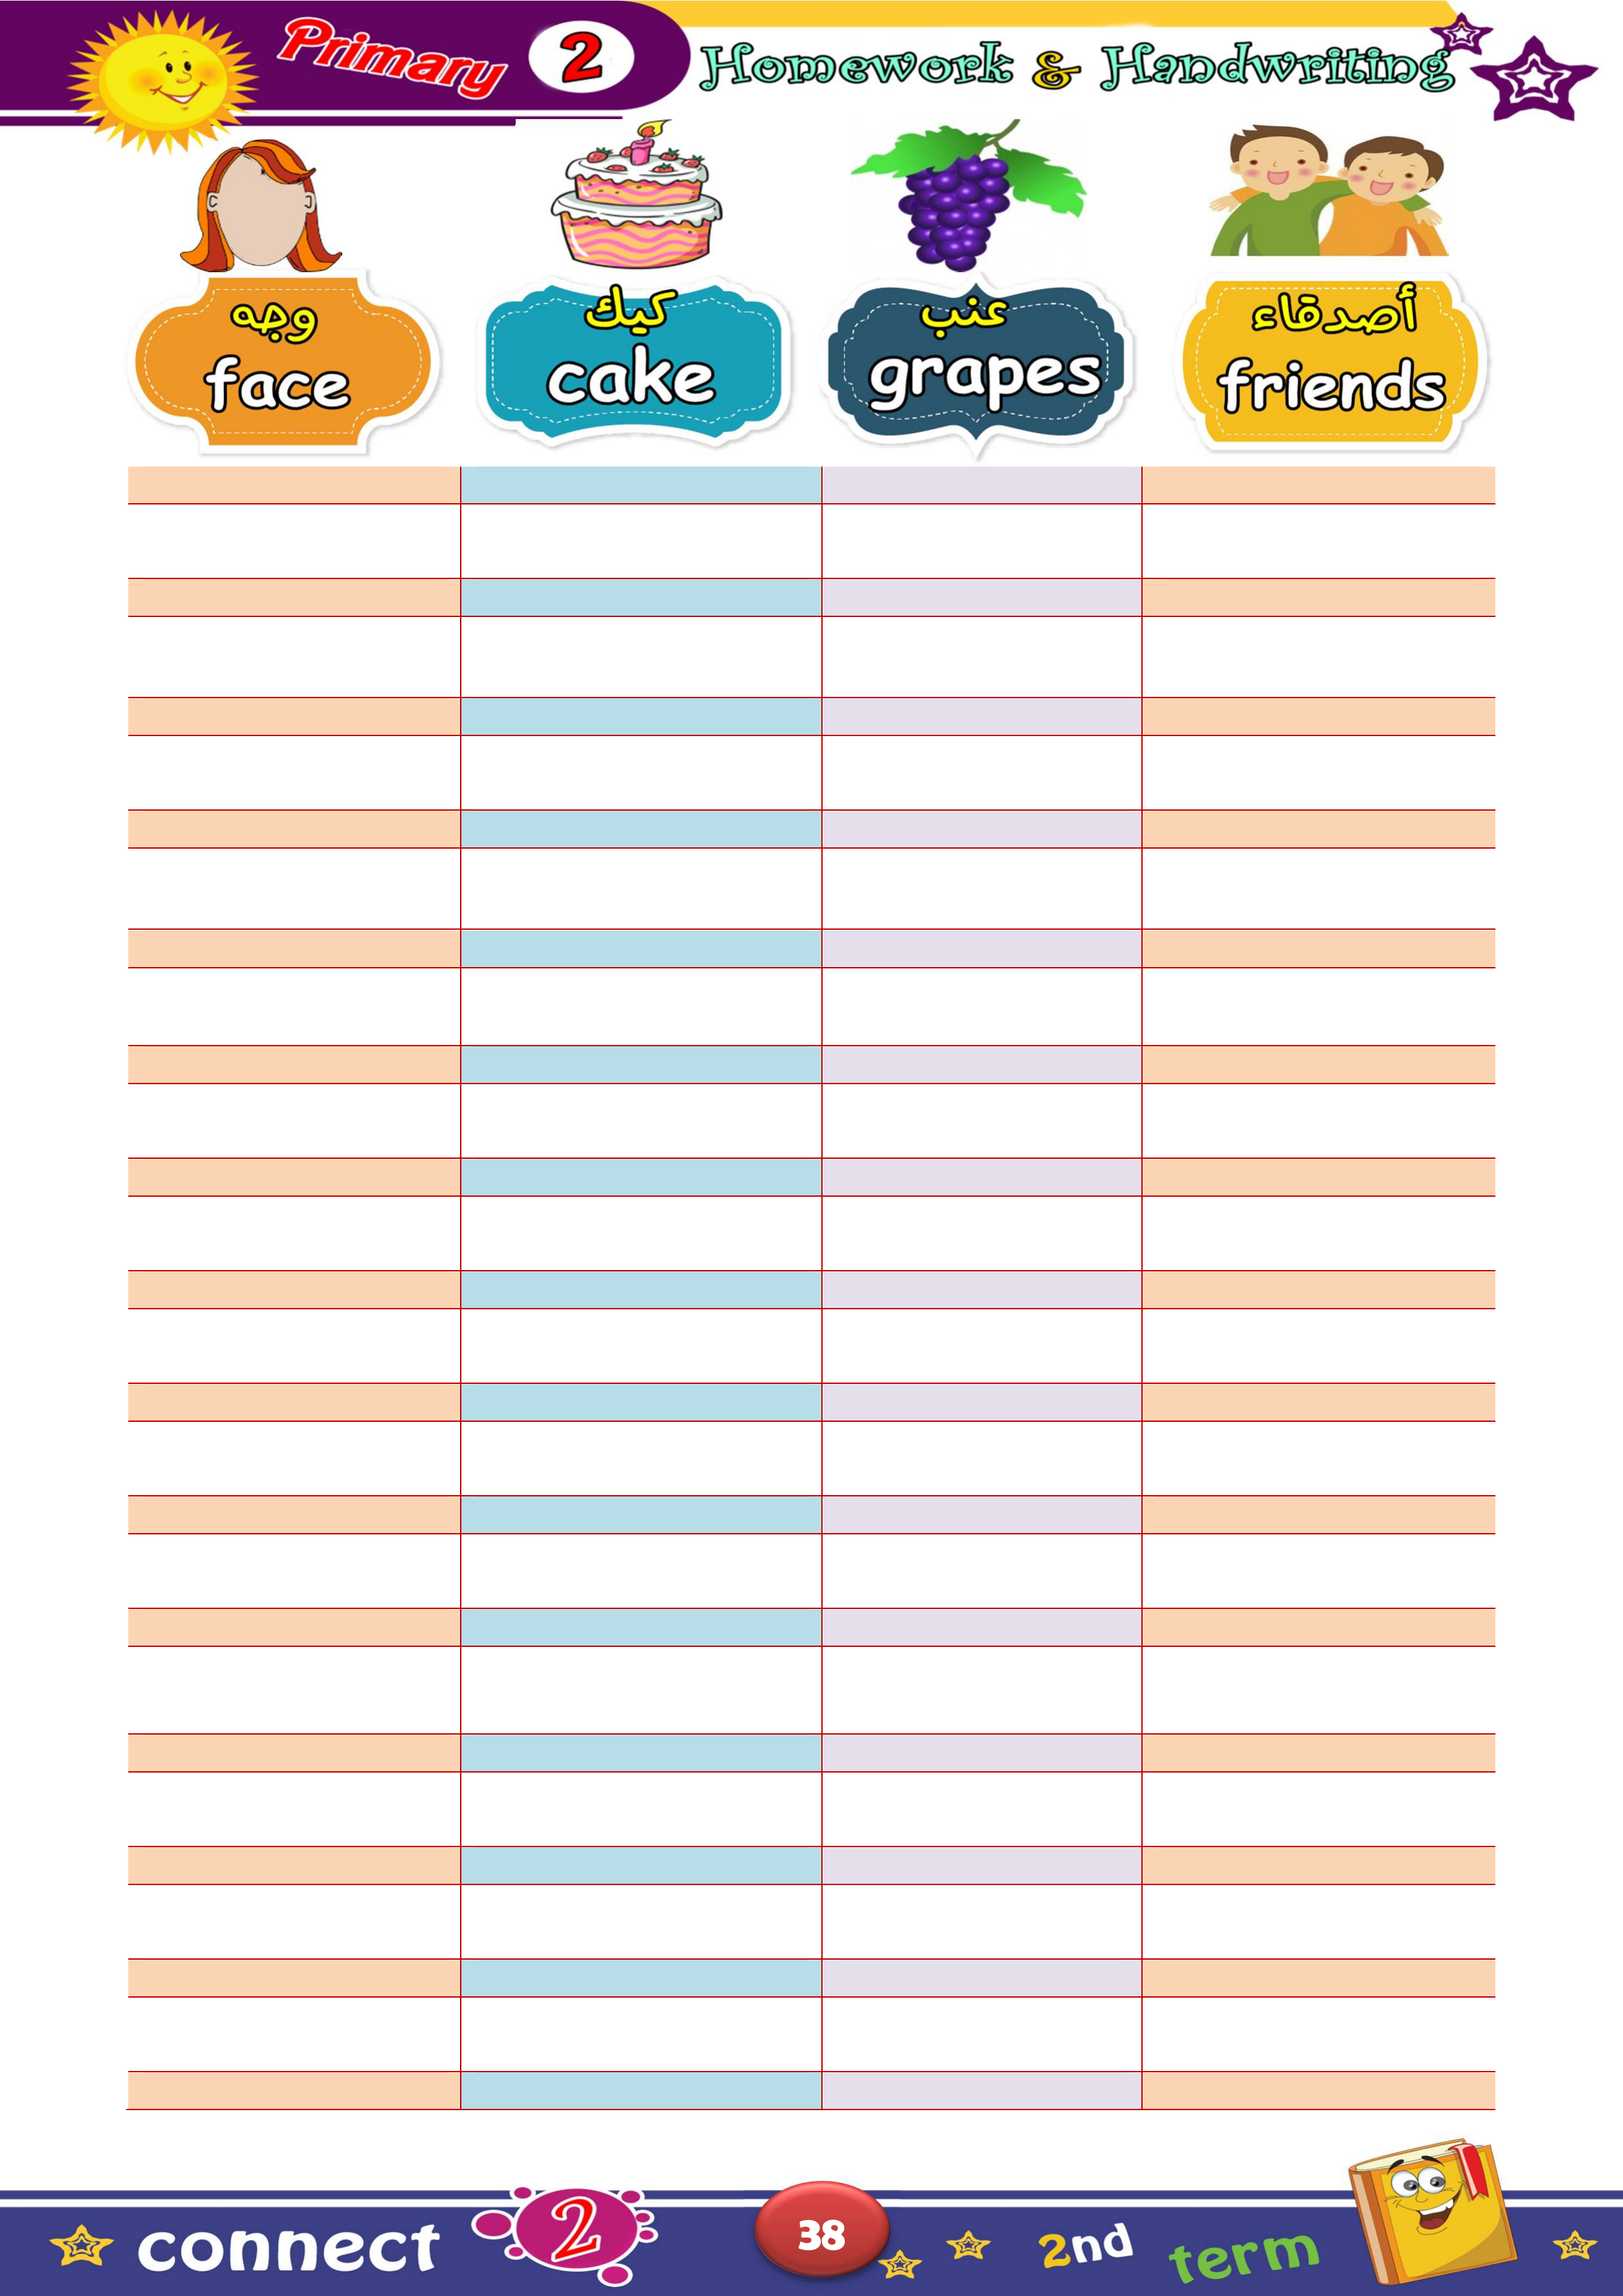 Primary 2 Homework & Handwriting
وجه
face
كيك
cake
عنب
grapes
أصدقاء
friends
connect 2 38 2nd term